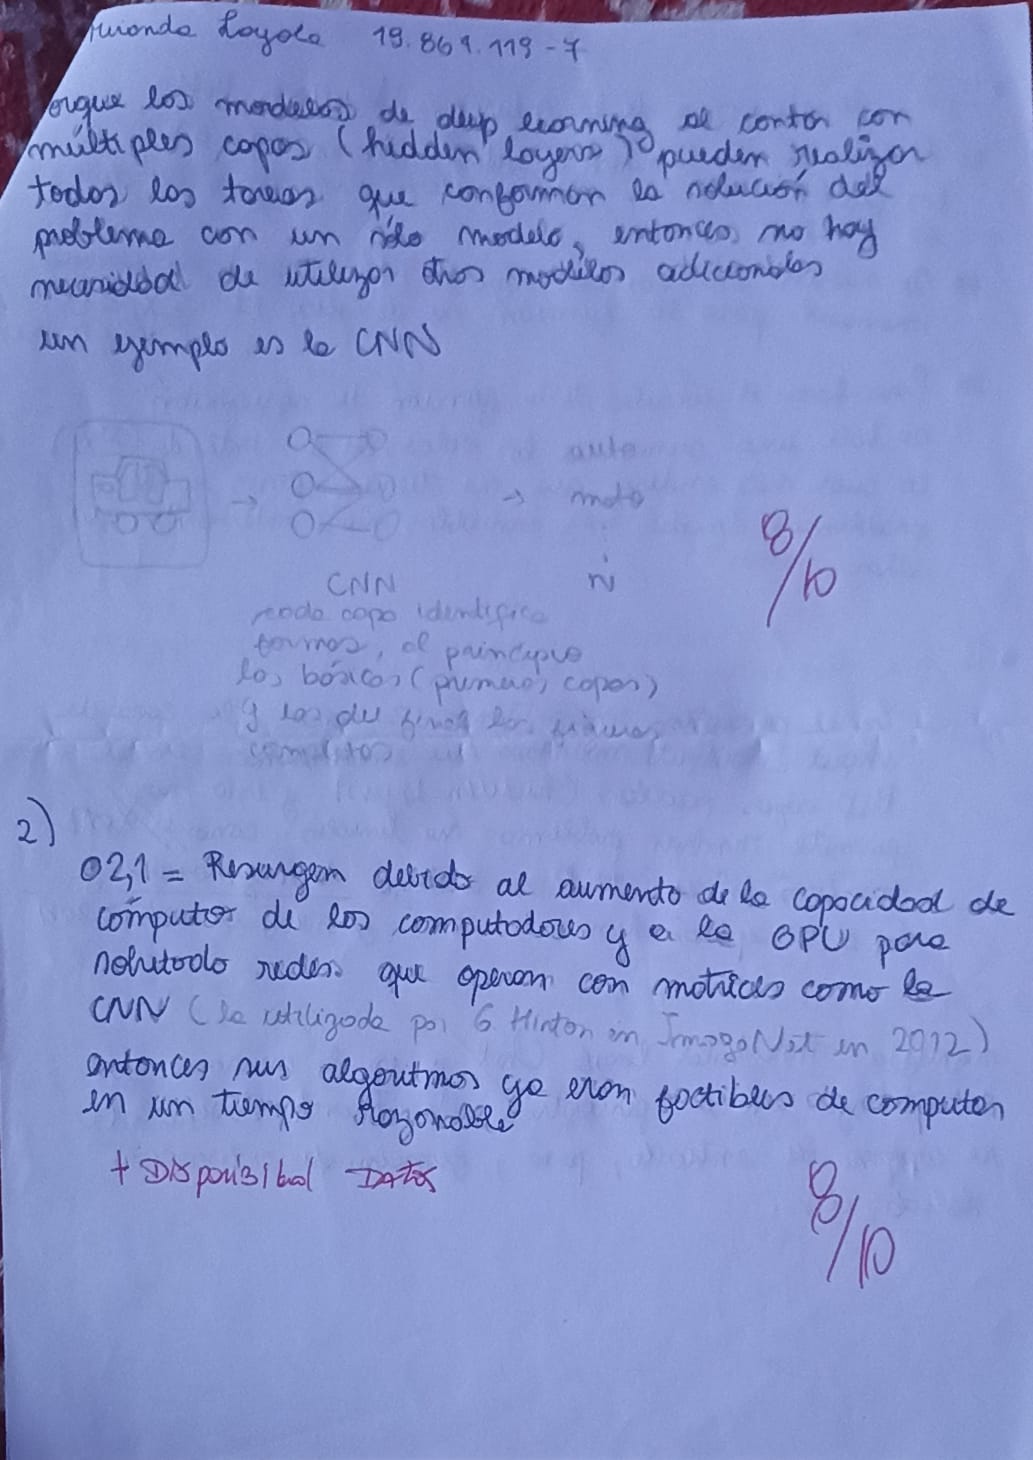 Miranda Loyola 19.861.119-7
orque los modelos de deep learning al contar con
múltiples capas (hidden layers) pueden realizar
todas las tareas que conforman la solución del
problema con un sólo modelo, entonces no hay
necesidad de utilizar otros modelos adicionales
un ejemplo es la CNN
auto
→ → moto
CNN
8/10
cada capa identifica
formas, al principio
las básicas (primeras capas)
y las del final las figuras
completas
2)
02,1 = Resurgem debido al aumento de la capacidad de
cómputo de los computadores y a la GPU para
redes que operan con matrices como la
CNN (la utilizada por G Hinton en ImageNet en 2012)
entonces sus algoritmos ya eran factibles de computar
en un tiempo razonable
+ Disponibilidad DATOS
8/10